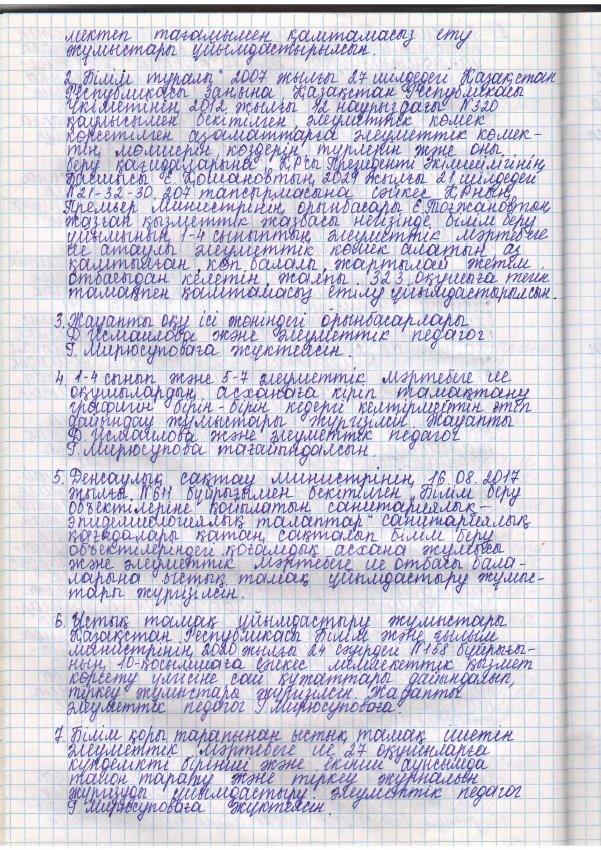 мектеп тағамымен қамтамасыз ету
жұмыстары ұйымдастырылсын.
2. "Білім туралы" 2007 жылғы 27 шілдедегі Қазақстан
Республикасы Заңына, Қазақстан Республикасы
Үкіметінің 2012 жылғы 12 наурыздағы №320
қаулысымен бекітілген әлеуметтік көмек
көрсетілген азаматтарға әлеуметтік көмек-
тің мөлшерін, көздерін, түрлерін және оны
беру қағидаларына, ҚРсы Президенті Әкімшілігінің
Басшысы Е. Қошановтың 2021 жылғы 21 шілдедегі
№21-32-30.207 тапсырмасына сәйкес ҚРның
Премьер Министрінің орынбасары Е.Тоғжановтың
жазған қызметтік жазбасы негізінде білім беру
ұйымының 1-4 сыныптың әлеуметтік мәртебеге
ие атаулы әлеуметтік көмек алатын, аз
қамтылған, көп балалы, жартылай жетім
отбасыдан келетін, жалпы 323 оқушыға тегін
тамақпен қамтамасыз етілу ұйымдастырылсын.
3. Жауапты оқу ісі жөніндегі орынбасарлары
Д.Исмаилова және әлеуметтік педагог
Г. Мирюсуповаға жүктелсін.
4. 1-4 сынып және 5-7 әлеуметтік мәртебеге ие
оқушылардың асханаға кіріп тамақтану
графигін бірін-бірін кедергі келтірмейтін етіп
дайындау жұмыстары жүргізілсін. Жауапты
Д.Исмаилова және әлеуметтік педагог
Г. Мирюсупова тағайындалсын.
5. Денсаулық сақтау министрінің 16.08.2017
жылғы №611 бұйрығымен бекітілген "Білім беру
объектілеріне қойылатын санитариялық-
эпидемиологиялық талаптар" санитариялық
қағидалары қатаң сақталып білім беру
объектілеріндегі қоғамдық асхана жұмысы
және әлеуметтік мәртебеге ие отбасы бала-
ларына ыстық тамақ ұйымдастыру жұмыс-
тары жүргізілсін.
6. Ыстық тамақ ұйымдастыру жұмыстары
Қазақстан Республикасы Білім және ғылым
министрінің 2020 жылғы 24 сәуірдегі №158 бұйрығы-
ның 10-қосымшаға сәйкес мемлекеттік қызмет
көрсету үлгісіне сай құжаттары дайындалып,
тіркеу жұмыстары жүргізілсін. Жауапты
әлеуметтік педагог Г.Мирюсуповаға.
7. Білім қоры тарапынан ыстық тамақ ішетін
әлеуметтік мәртебеге ие 27 оқушыларға
күнделікті бірінші және екінші ауысымда
талон тарату және тіркеу журналын
жүргізуді ұйымдастыру әлеуметтік педагог
Г. Мирюсуповаға жүктелсін.